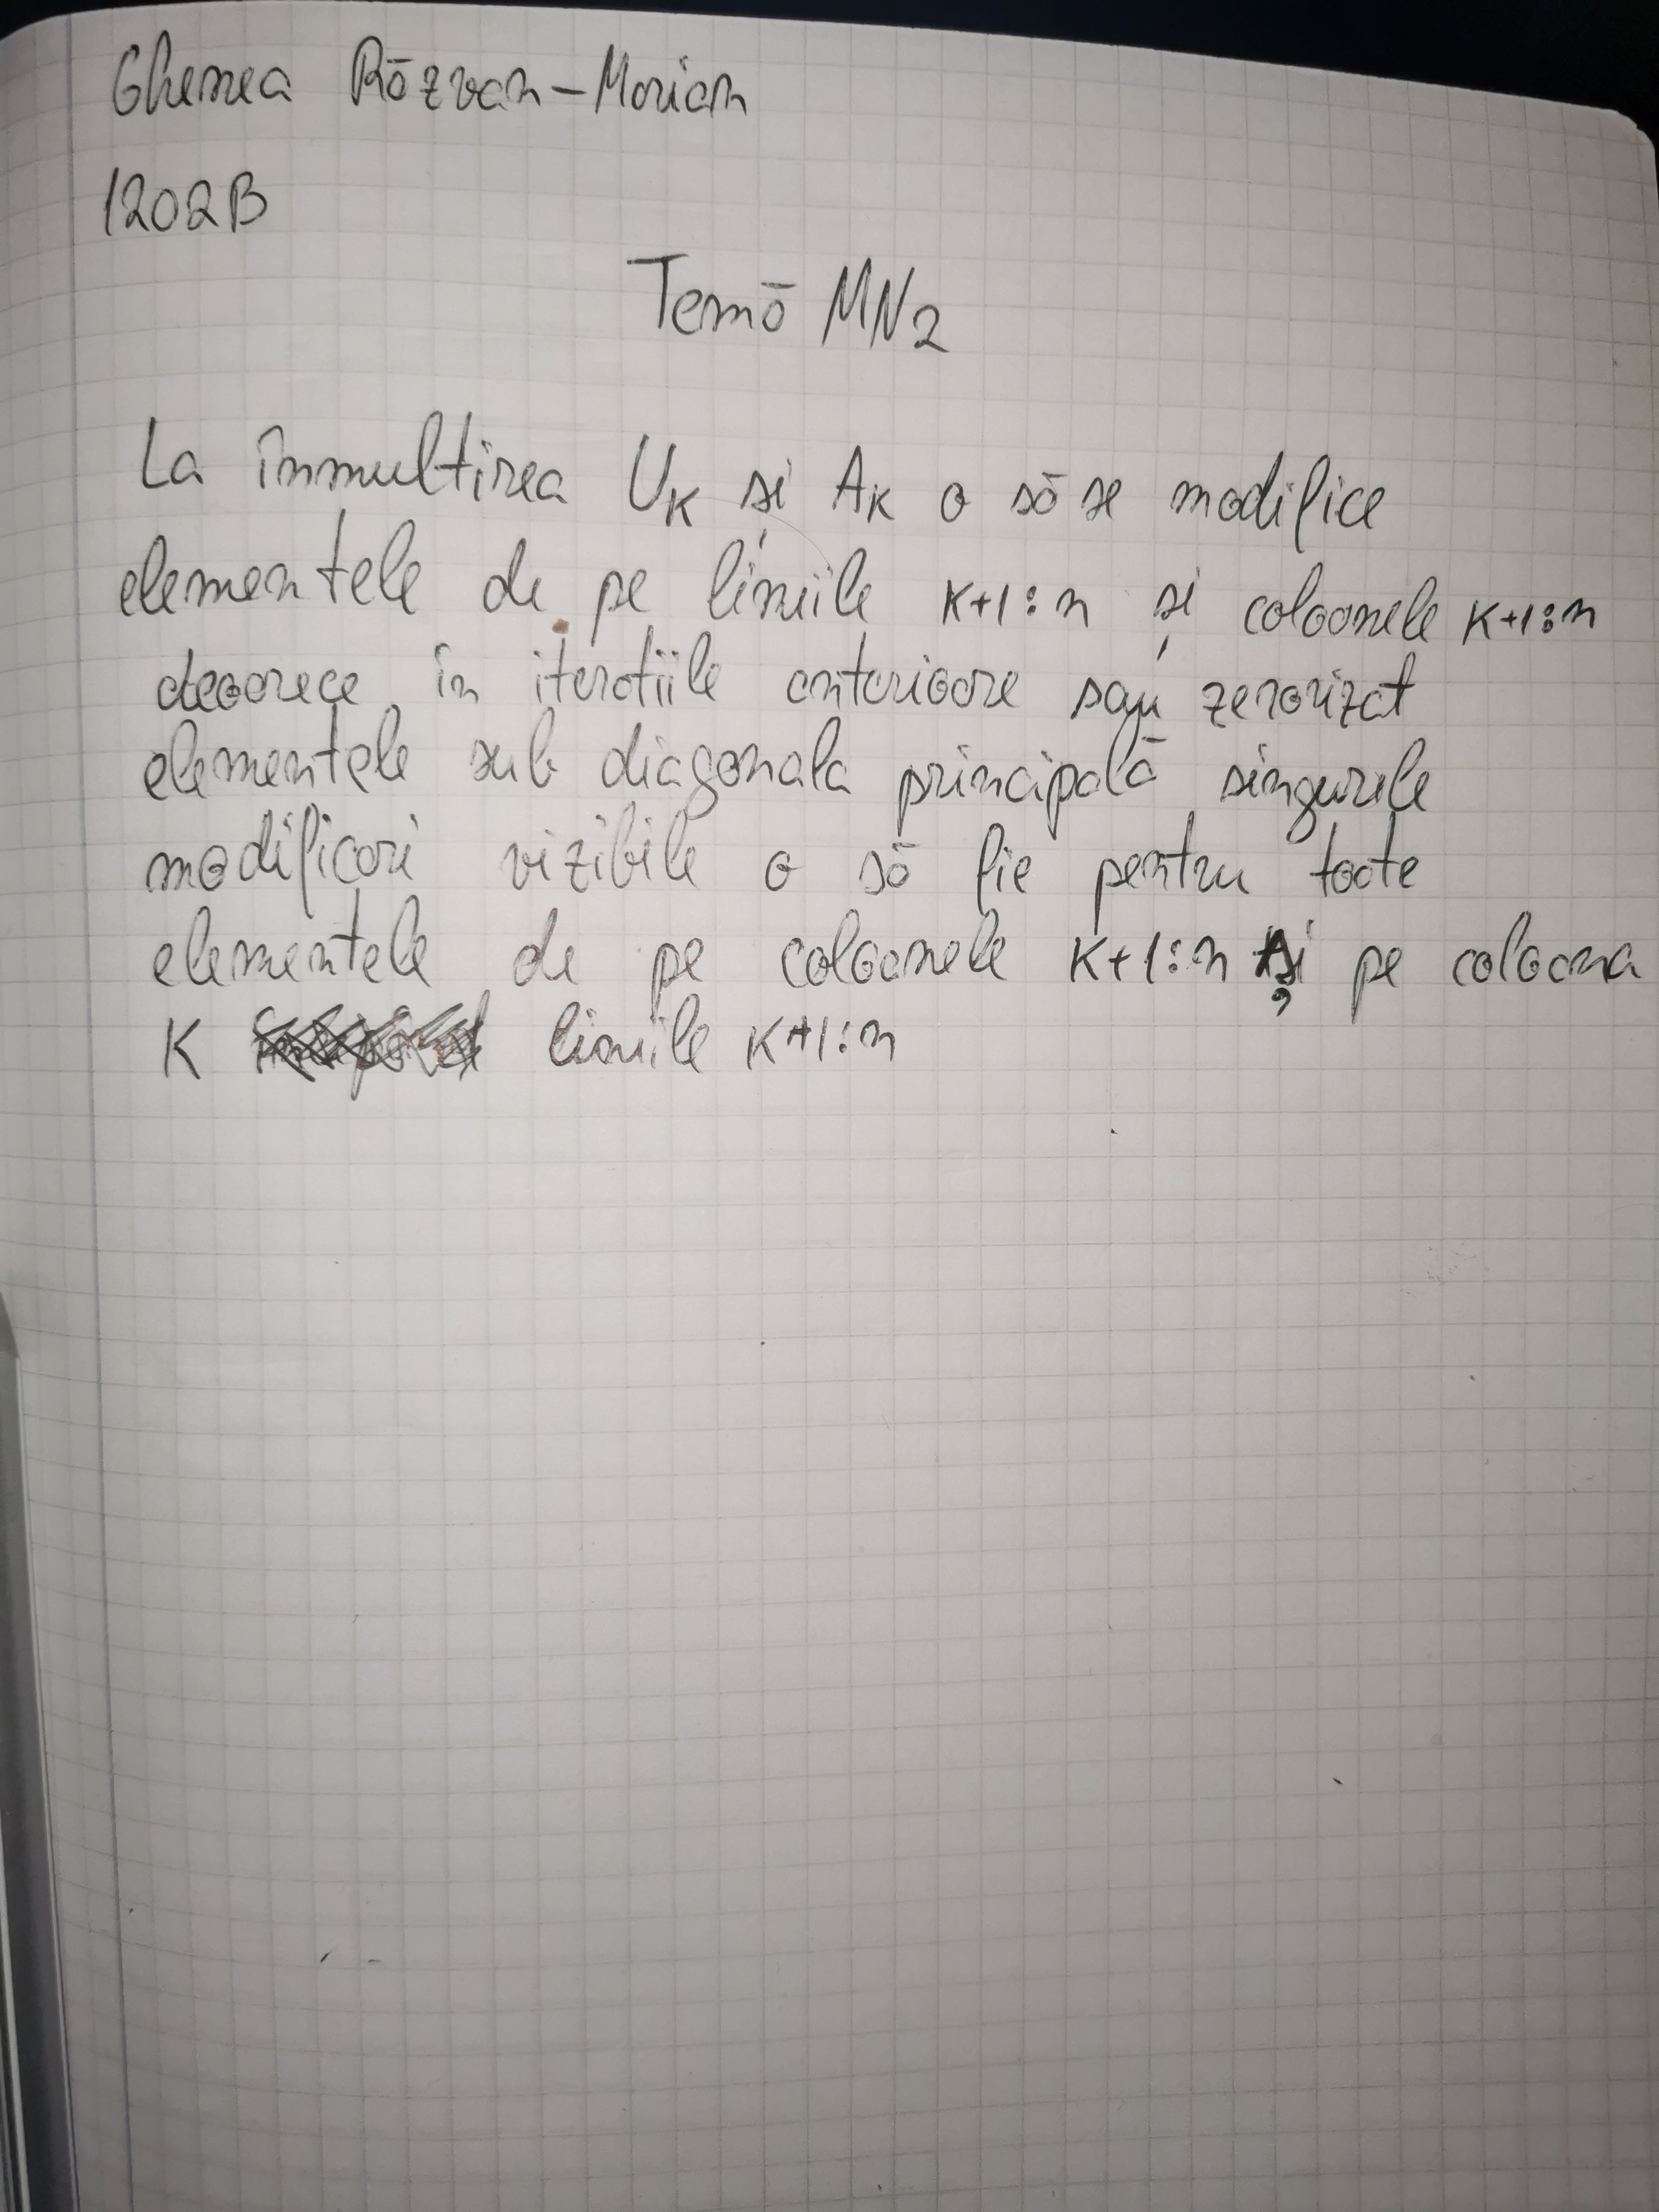 Ghenea Răzvan-Marian
1202B
Temă MN2
La înmultirea UK și AK o să se modifice
elementele de pe liniile K+1:n și coloanele K+1:n
deoarece în iteratiile anterioare sau zerorizat
elementele sub diagonala principală singurele
modificari vizibile o să fie pentru toate
elementele de pe coloanele K+1:n și pe coloana
K liniile K+1:n